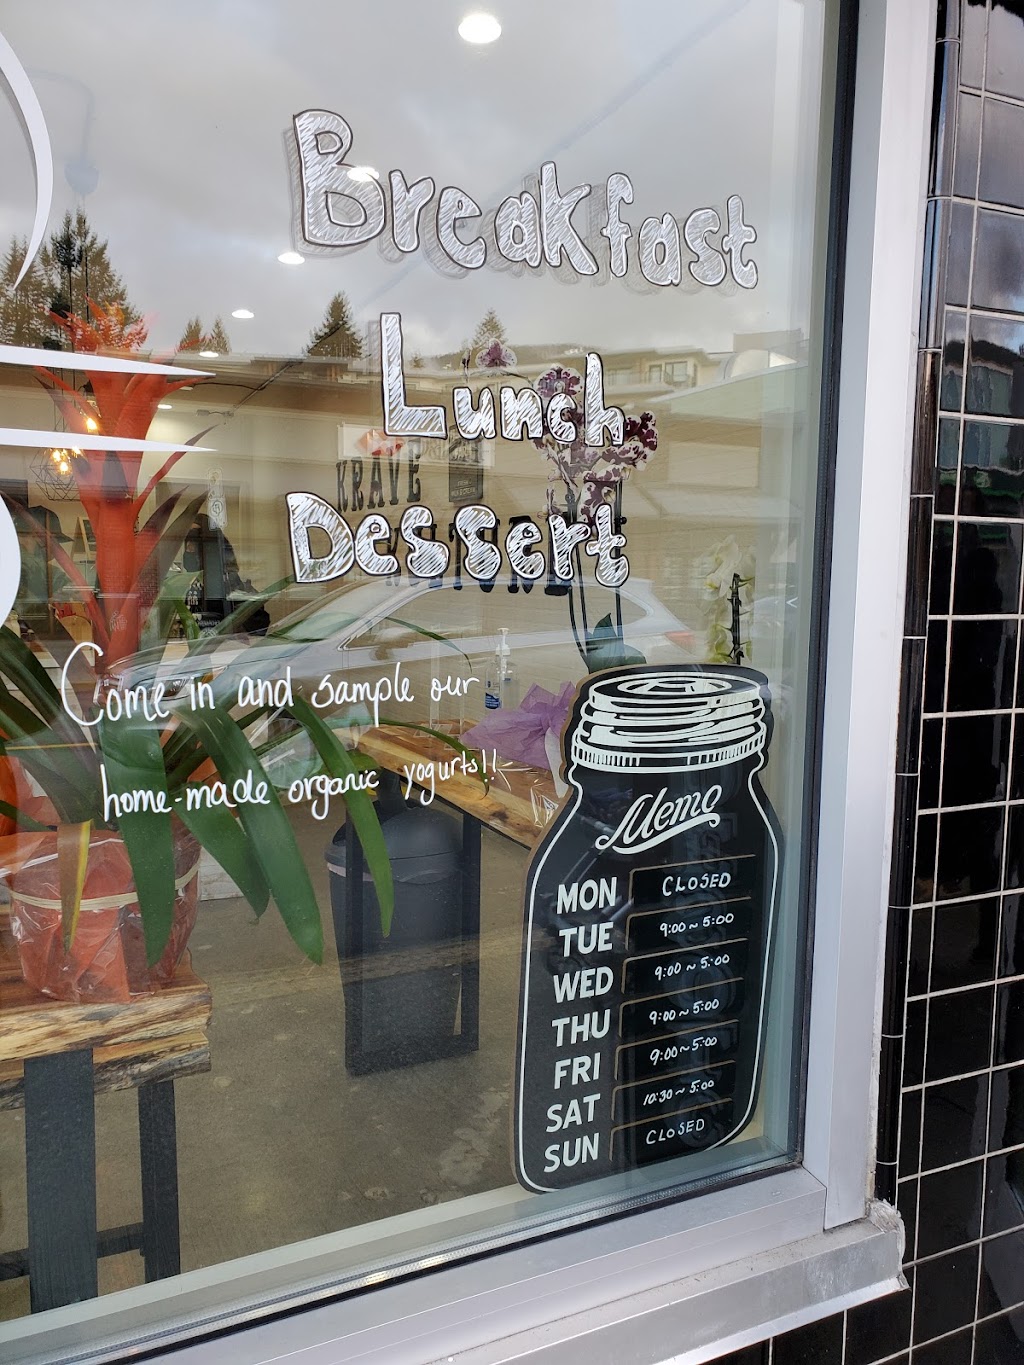 Breakfast
Lunch
KRAVE
Dessert
Come in and sample our
home-made organic yogurts!!
Memo
MON CLOSED
TUE 9:00~5:00
WED 9:00~5:00
THU 9:00~5:00
FRI 9:00~5:00
SAT 10:30~5:00
SUN CLOSED